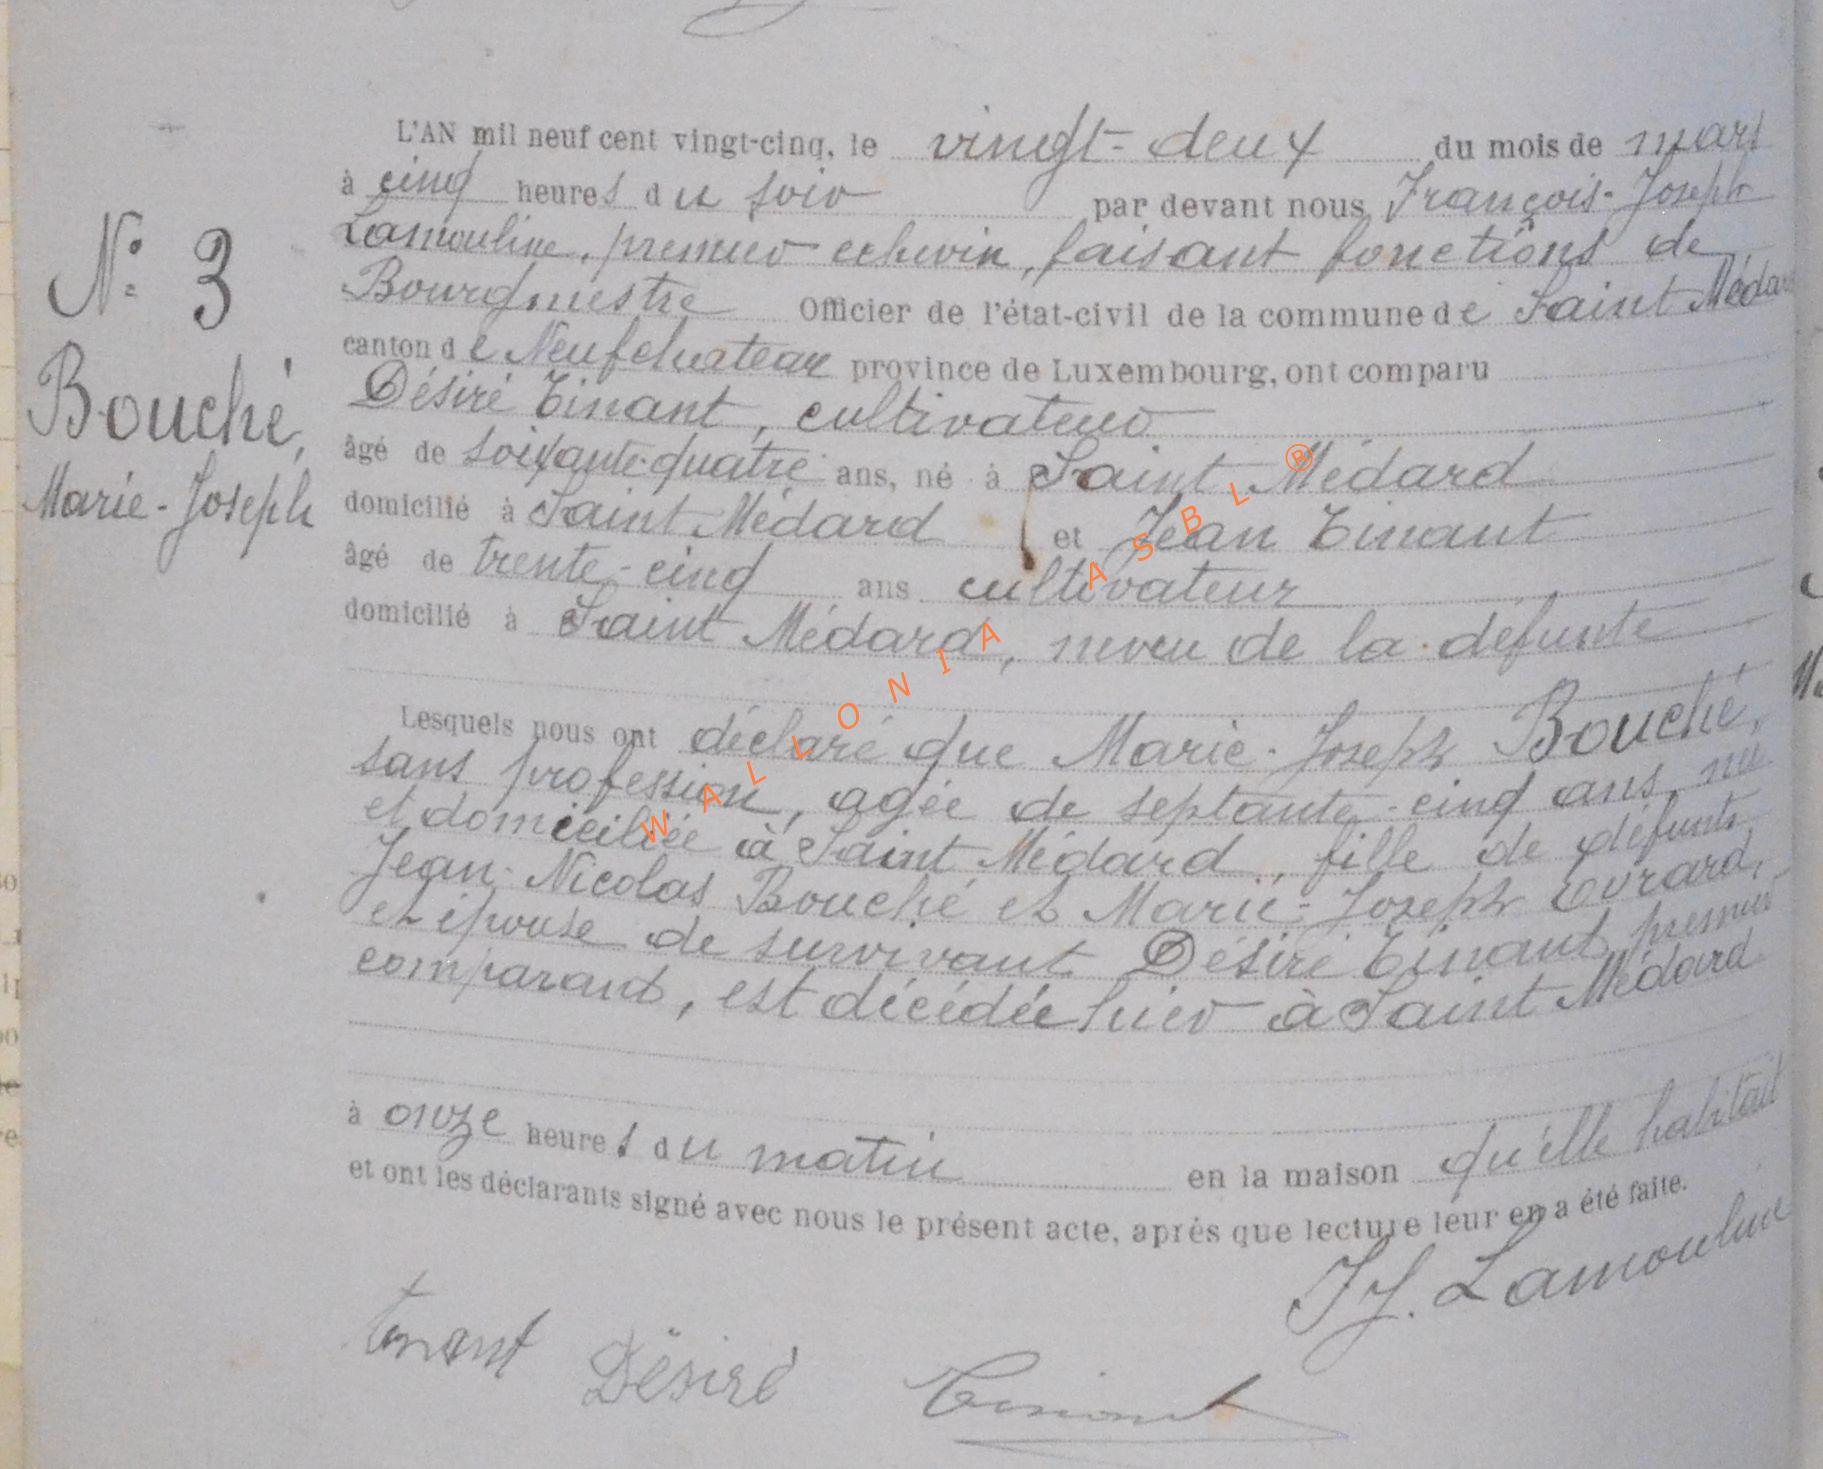 L'AN mil neuf cent vingt-cinq, le vingt-deux du mois de mars
à cinq heures du soir par devant nous François-Joseph
Lamouline, premier echevin, faisant fonctions de
Bourgmestre Officier de l'état-civil de la commune de Saint Médard
canton de Neufchateau province de Luxembourg, ont comparu
Désiré Tinant, cultivateur
âgé de soixante-quatre ans, né à Saint Médard
domicilié à Saint Médard et Jean Tinant
âgé de trente-cinq ans cultivateur
domicilié à Saint Médard, neveu de la défunte
N° 3
Bouché,
Marie-Joseph
Lesquels nous ont déclaré que Marie-Joseph Bouché,
sans profession, agée de septante-cinq ans, née
et domiciliée à Saint Médard, fille de défunts
Jean-Nicolas Bouché et Marie-Joseph Evrard,
et épouse de survivant Désiré Tinant, premier
comparant, est décédée hier à Saint Médard
à onze heures du matin en la maison qu'elle habitait
et ont les déclarants signé avec nous le présent acte, après que lecture leur en a été faite.
J J. Lamouline
Tinant Désiré Tinant
WALLONIA ASBL ®